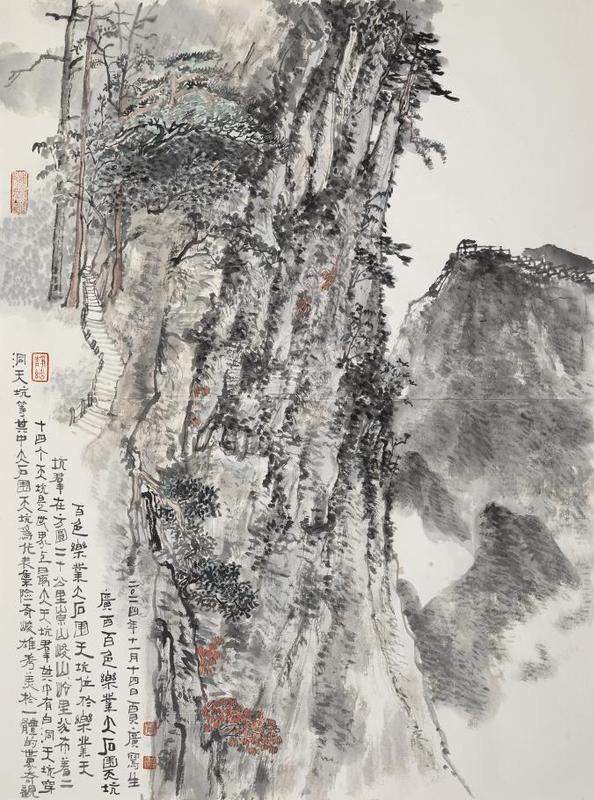 二〇一四年十一月十四日廣寫生
廣西百色樂業大石圍天坑
百色樂業大石圍天坑位於樂業天
坑羣在方圓二十公里崇山峻岭里分布着二
十四个天坑是世界上最大天坑羣其中有白洞天坑穿
洞天坑等其中大石圍天坑為代表集險奇峻雄秀美於一體的世界奇觀